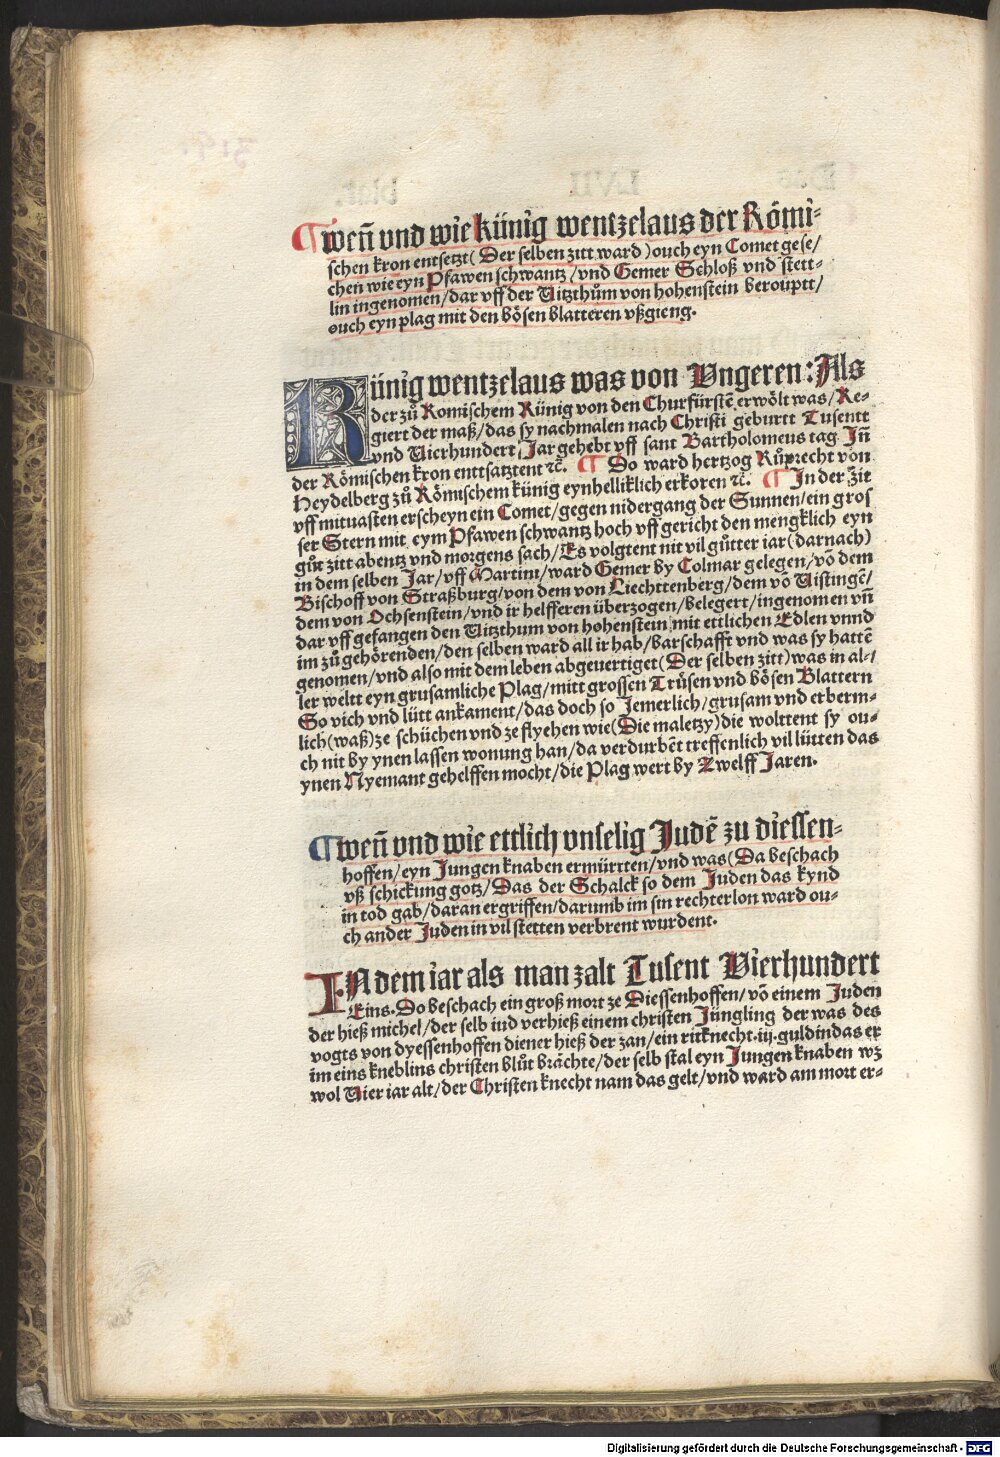 ¶ weñ vnd wie künig wentzelaus der Römi⸗
schen kron entsetzt( Der selben zitt ward ) ouch eyn Comet gese/
chen wie eyn Pfawen schwantz /vnd Gemer Schloß vnd stett⸗
lin ingenomen/dar vff der Vitzthům von hohenstein berouptt/
ouch eyn plag mit den bösen blatteren vßgieng.
Künig wentzelaus was von Vngeren: Als
der zů Romischem Künig von den Churfürstē erwölt was/Re⸗
giert der maß/das sy nachmalen nach Christi geburtt Tusentt
vnd Vierhundert Jar gehebt vff sant Bartholomeus tag Jñ
der Römischen kron enttsatztent ꝛc̄. ¶ Do ward hertzog Růprecht von
Heydelberg zů Römischem künig eynhelliklich erkoren ꝛc̄. ¶ In der Zit
vff mitnasten erscheyn ein Comet/gegen nidergang der Sunnen/ein gros
ser Stern mit eym Pfawen schwantz hoch vff gericht den mengklich eyn
gůt zitt abentz vnd morgens sach/Es volgtent nit vil gůtter iar(darnach)
in dem selben Jar/vff Martini/ward Gemer by Colmar gelegen/vō dem
Bischoff von Straßburg/von dem von Liechttenberg/dem vō Vistingē/
dem von Ochsenstein/vnd ir helfferen überzogen/belegert/ingenomen vñ
dar vff gefangen den Vitzthum von hohenstein mit ettlichen Edlen vnnd
im zů gehörenden/den selben ward all ir hab/barschafft vnd was sy hattē
genomen/vnd also mit dem leben abgeuertiget(Der selben zitt)was in al⸗/
ler weltt eyn grusamliche Plag/mitt grossen Trůsen vnd bösen Blattern
So vich vnd lütt ankament/das doch so Jemerlich/grusam vnd erberm⸗
lich(waß)ze schüchen vnd ze flyehen wie(Die maletzy)die wolttent sy ou⸗
ch nit by ynen lassen wonung han/da verdurbēt treffenlich vil lütten das
ynen Nyemant gehelffen mocht/die Plag wert by Zwelff Jaren.
¶ weñ vnd wie ettlich vnselig Judē zu diessen⸗
hoffen/eyn Jungen knaben ermürtten/vnd was(Da beschach
vß schickung gotz/Das der Schalck so dem Juden das kynd
in tod gab/daran ergriffen/darumb im sin rechter lon ward ou⸗
ch ander Juden in vil stetten verbrent wurdent.
IN dem iar als man zalt Tusent Vierhundert
Eins. Do beschach ein groß mort ze Diessenhoffen/vō einem Juden
der hieß michel/der selb iud verhieß einem christen Jüngling der was des
vogts von dyessenhoffen diener hieß der zan/ein ritknecht.iij.guldin das er
im eins kneblins christen blůt brächte/der selb stal eyn Jungen knaben wz
wol Vier iar alt/der Christen knecht nam das gelt/vnd ward am mort er⸗
Digitalisierung gefördert durch die Deutsche Forschungsgemeinschaft - DFG